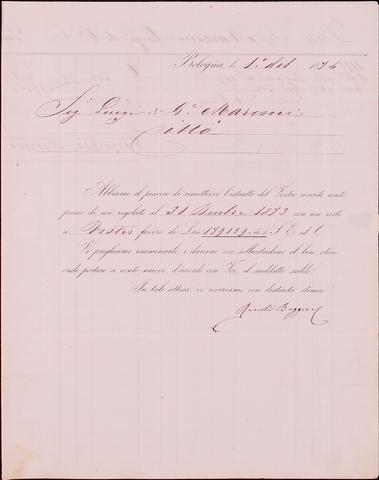 Bologna, li 1º del 1874
Sig Luigi di G. Marconi
Città
Abbiamo il piacere di rimettervi l'estratto del Vostro riverito conto
presso di noi regolato al 31 Dicembre 1873 con un resto
a Vostro favore di Lire 179129.40 S. E. ed O.
Vi preghiamo esaminarlo, e darcene con sollecitudine il ben stare,
onde portare a conto nuovo, d'accordo con Voi, il suddetto saldo.
In tale attesa, vi riveriamo con distinta stima